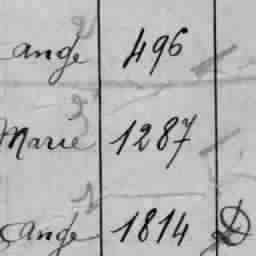 ange 496
Marie 1287
Ange 1814 D